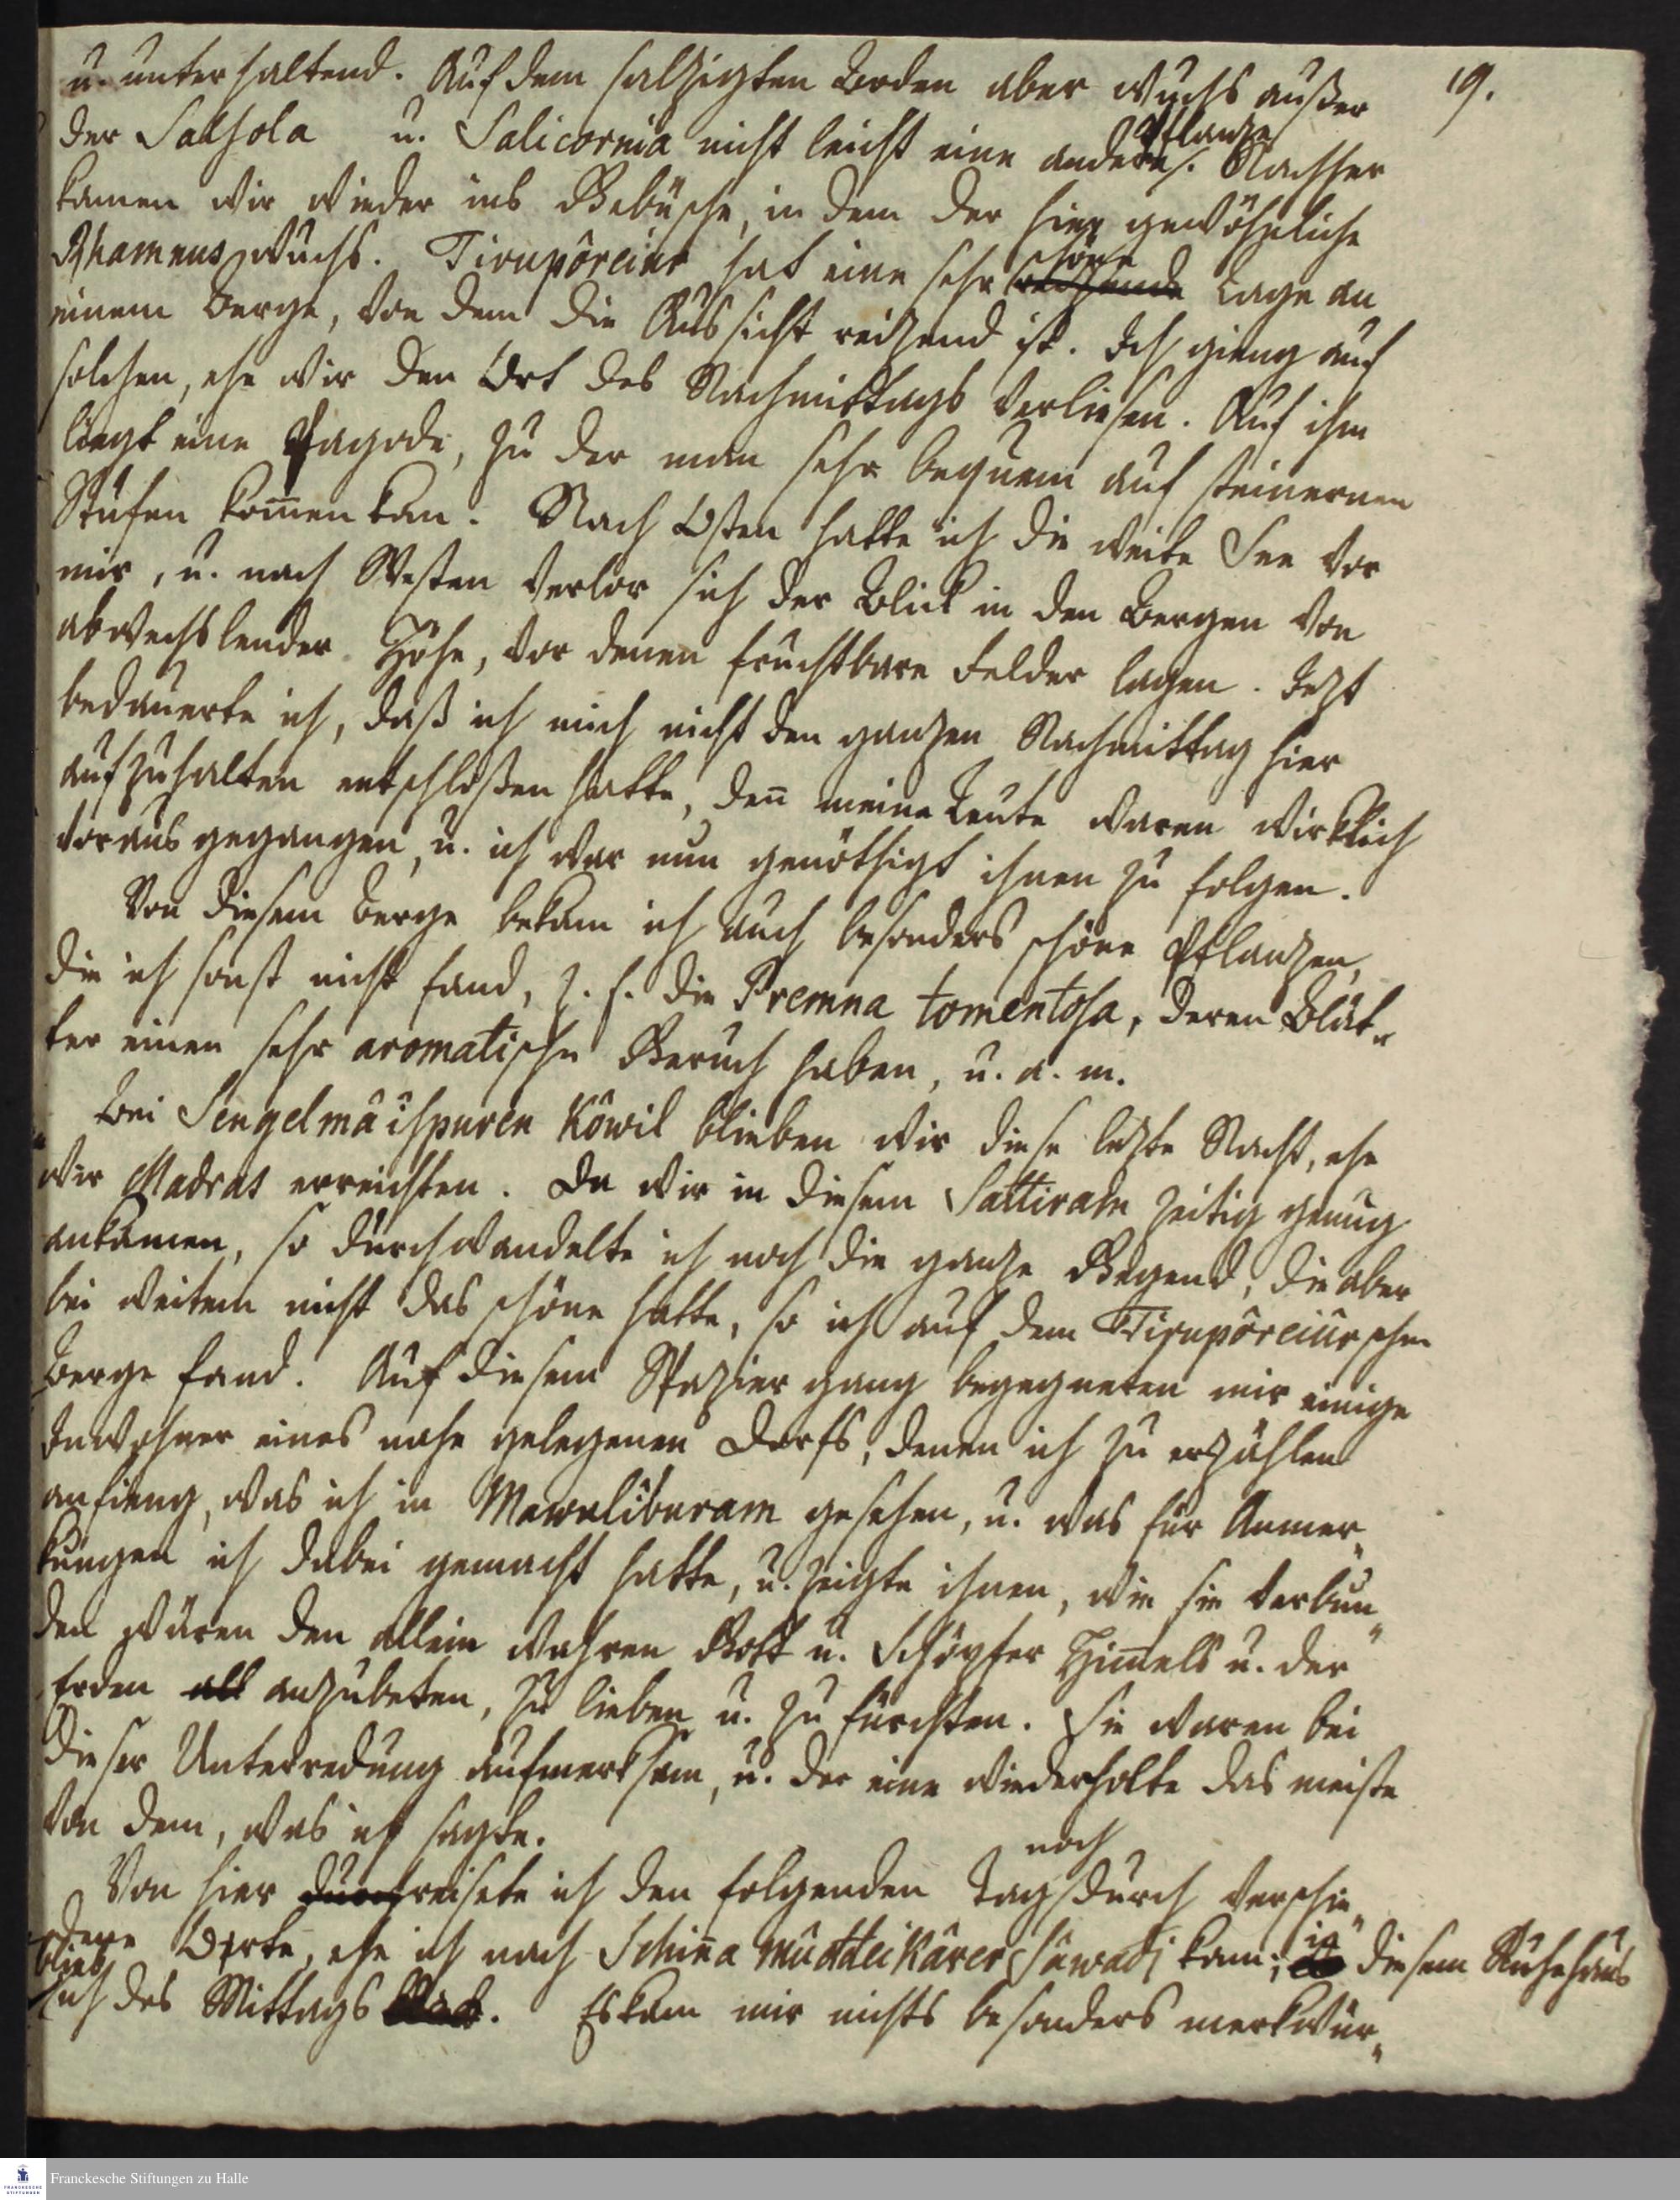 19.
u. unterhaltend. Auf dem salzigten Boden aber wuchs außer
der Salsola u. Salicornia nicht leicht eine andere Pflanze. Nachher
kamen wir wieder ins Gebüsche, in dem der hier gewöhnliche
Rhamnus wuchs. Tirupôreiur hat eine sehr reizende schöne Lage an
einem Berge, von dem die Aussicht reizend ist. Ich gieng auf
solchen, ehe wir den Ort des Nachmittags verliesen. Auf ihm
liegt eine Pagode, zu der man sehr bequem auf steinernen
Stufen kom̄en kan. Nach Osten hatte ich die weite See vor
mir, u. nach Westen verlor sich der Blick in den Bergen von
abwechslender Höhe, vor denen fruchtbare Felder lagen. Jezt
bedauerte ich, daß ich mich nicht den ganzen Nachmittag hier
aufzuhalten entschloßen hatte, den̄ meine Leute waren wirklich
voraus gegangen, u. ich war nun genöthigt ihnen zu folgen.
Von diesem Berge bekam ich auch besonders schöne Pflanzen,
die ich sonst nicht fand, z. E. die Premna tomentosa, deren Blät„
ter einen sehr aromatischen Geruch haben, u. a. m.
Bei Sengelmâispuren Kôwil blieben wir diese lezte Nacht, ehe
wir Madras erreichten. Da wir in diesem Sattiram zeitig genug
ankamen, so durchwandelte ich noch die ganze Gegend, die aber
bei weitem nicht das schöne hatte, so ich auf dem Tirupôreiurschen
Berge fand. Auf diesem Spaziergang begegneten mir einige
Inwohner eines nahe gelegenen Dorfs, denen ich zu erzählen
anfieng, was ich in Mawaliburam gesehen, u. was für Anmer„
kungen ich dabei gemacht hatte, u. zeigte ihnen, wie sie verbun„
den wären den allein wahren Gott u. Schöpfer Him̄els u. der
Erden all anzubeten, zu lieben u. zu fürchten. Sie waren bei
dieser Unterredung aufmerksam, u. der eine wiederholte das meiste
von dem, was ich sagte.
Von hier durch reisete ich den folgenden Tag noch durch verschie„
dene Orte, ehe ich nach Schin̄a Muddeikârer Sâwadi kam; in diesem Ruhehaus
blieb ich des Mittags. Es kam mir nichts besonders merkwür„
Franckesche Stiftungen zu Halle